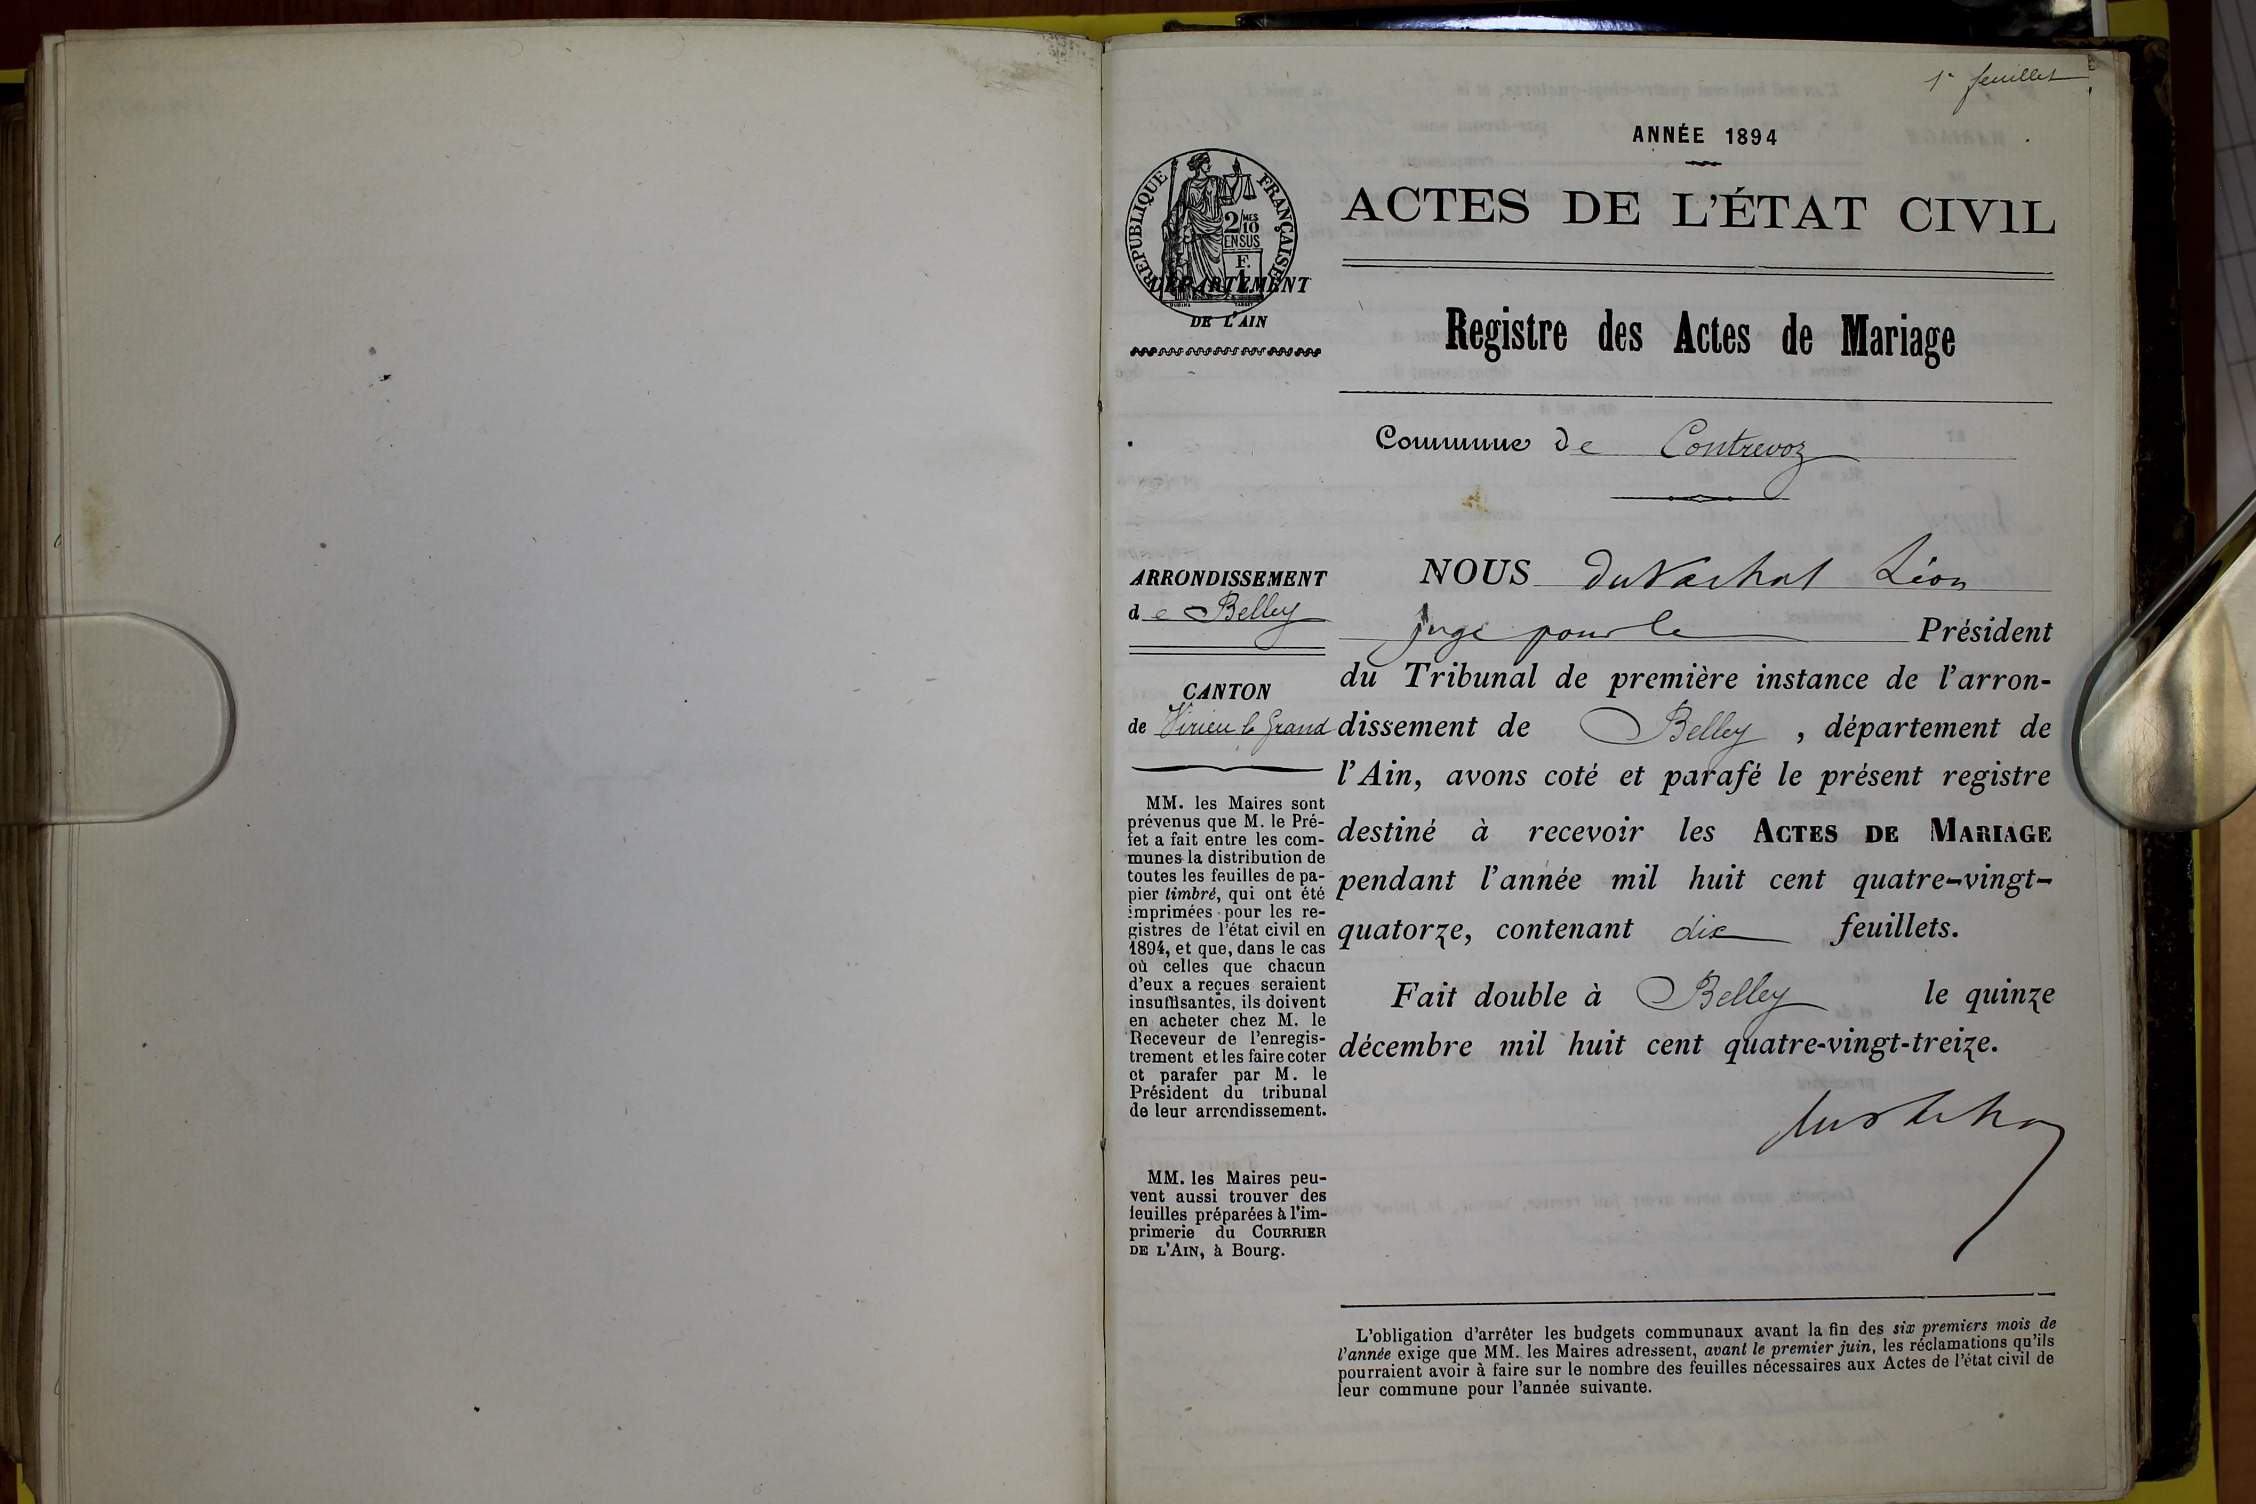 1er feuillet
ANNÉE 1894
ACTES DE L'ÉTAT CIVIL
RÉPUBLIQUE FRANÇAISE
2/10 MES
EN SUS
F.
DÉPARTEMENT
DE L'AIN
Registre des Actes de Mariage
Commune de Contrevoz
ARRONDISSEMENT
de Belley
CANTON
de Virieu le Grand
MM. les Maires sont
prévenus que M. le Pré-
fet a fait entre les com-
munes la distribution de
toutes les feuilles de pa-
pier timbré, qui ont été
imprimées pour les re-
gistres de l'état civil en
1894, et que, dans le cas
où celles que chacun
d'eux a reçues seraient
insuffisantes, ils doivent
en acheter chez M. le
Receveur de l'enregis-
trement et les faire coter
et parafer par M. le
Président du tribunal
de leur arrondissement.
MM. les Maires peu-
vent aussi trouver des
feuilles préparées à l'im-
primerie du COURRIER
DE L'AIN, à Bourg.
NOUS du Vachat Léon
juge pour le Président
du Tribunal de première instance de l'arron-
dissement de Belley, département de
l'Ain, avons coté et parafé le présent registre
destiné à recevoir les ACTES DE MARIAGE
pendant l'année mil huit cent quatre-vingt-
quatorze, contenant dix feuillets.
Fait double à Belley le quinze
décembre mil huit cent quatre-vingt-treize.
L'obligation d'arrêter les budgets communaux avant la fin des six premiers mois de
l'année exige que MM. les Maires adressent, avant le premier juin, les réclamations qu'ils
pourraient avoir à faire sur le nombre des feuilles nécessaires aux Actes de l'état civil de
leur commune pour l'année suivante.